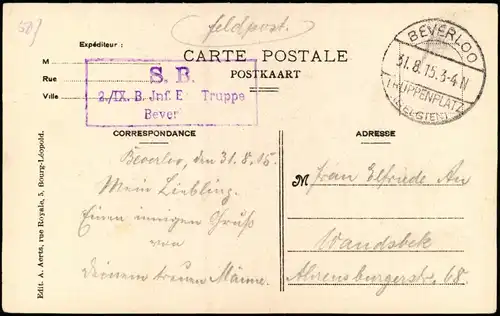 50/
Feldpost.
Expéditeur :
M
Rue
Ville
CARTE POSTALE
POSTKAART
S. B.
2./IX. B. Inf. E Truppe
Bever
BEVERLOO
31.8.15. 3-4 N
TRUPPENPLATZ
(BELGIEN)
CORRESPONDANCE
ADRESSE
Beverloo, den 31.8.15.
Mein Liebling.
Einen innigen Gruß
von
Deinem treuen Männe.
M Frau Elfriede An
Wandsbek
Ahrensburgerstr. 68.
Edit. A. Aerts, rue Royale, 5, Bourg-Léopold.